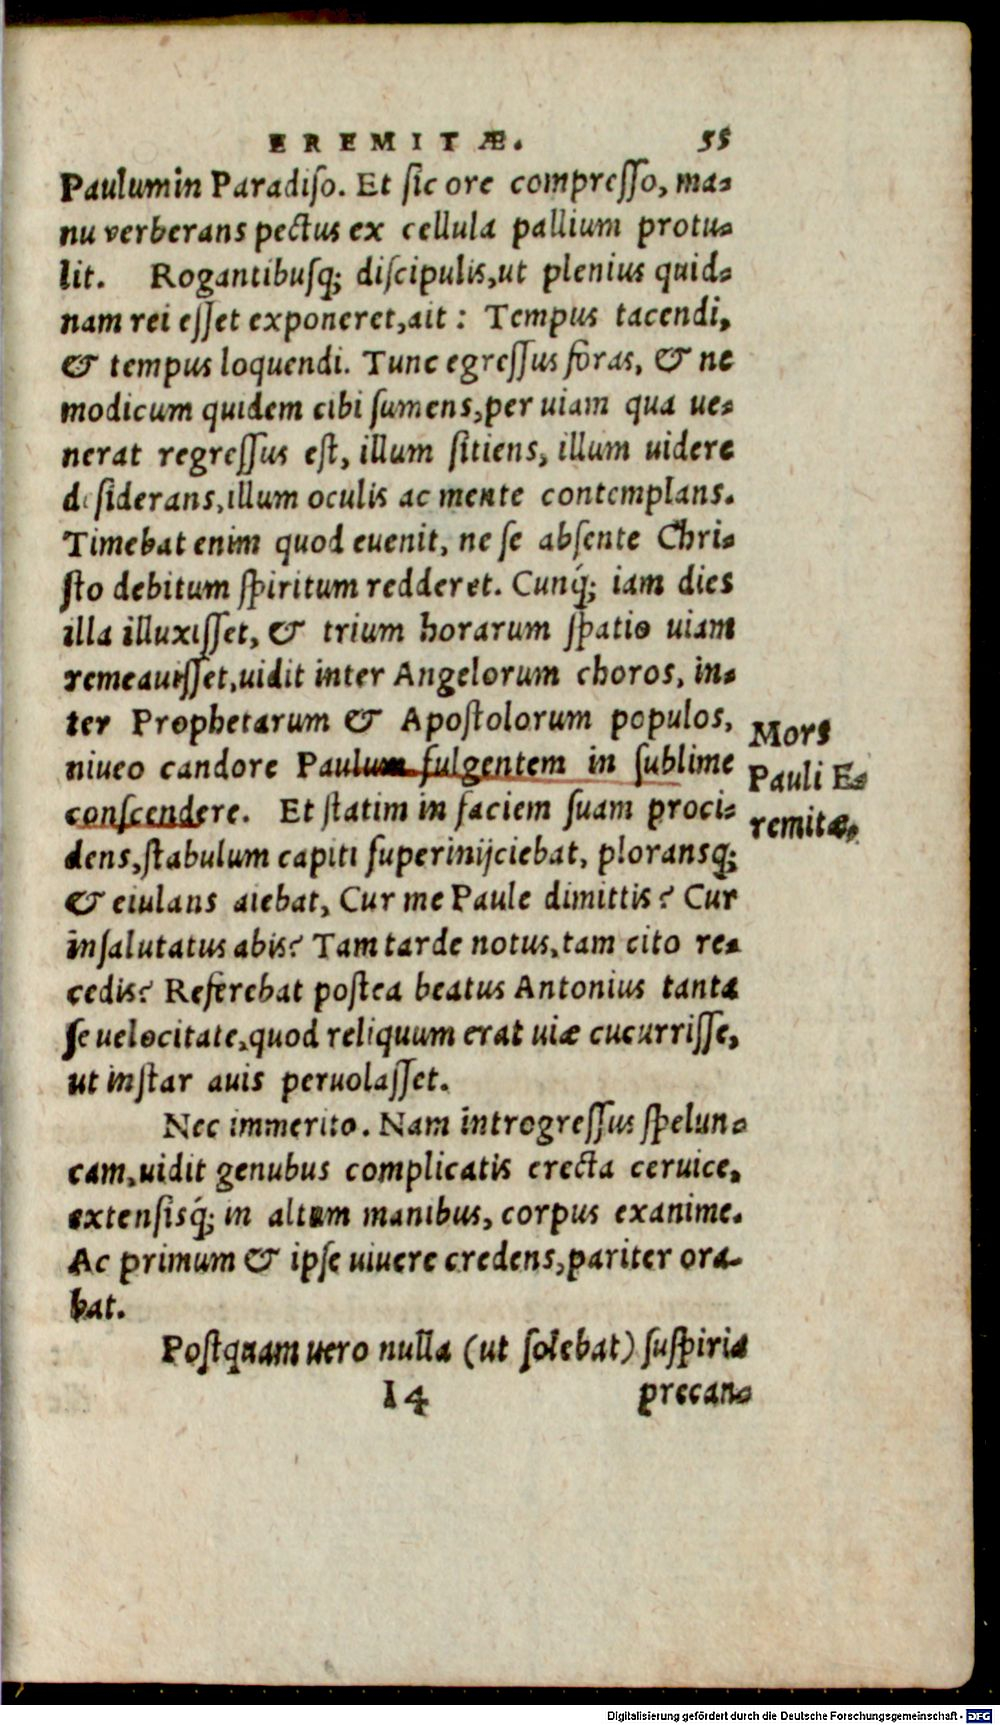 EREMITÆ. 55
Paulum in Paradiso. Et sic ore compresso, ma-
nu verberans pectus ex cellula pallium protu-
lit. Rogantibusq; discipulis, ut plenius quid-
nam rei esset exponeret, ait: Tempus tacendi,
& tempus loquendi. Tunc egressus foras, & ne
modicum quidem cibi sumens, per uiam qua ue-
nerat regressus est, illum sitiens, illum uidere
desiderans, illum oculis ac mente contemplans.
Timebat enim quod euenit, ne se absente Chri-
sto debitum spiritum redderet. Cunq́; iam dies
illa illuxisset, & trium horarum spatio uiam
remeauisset, uidit inter Angelorum choros, in-
ter Prophetarum & Apostolorum populos,
niueo candore Paulum fulgentem in sublime
conscendere. Et statim in faciem suam proci-
dens, stabulum capiti superinijciebat, ploransq;
& eiulans aiebat, Cur me Paule dimittis? Cur
insalutatus abis? Tam tarde notus, tam cito re-
cedis? Referebat postea beatus Antonius tanta
se uelocitate, quod reliquum erat uiæ cucurrisse,
ut instar auis peruolasset.
Nec immerito. Nam introgressus spelun-
cam, uidit genubus complicatis erecta ceruice,
extensisq́; in altum manibus, corpus exanime.
Ac primum & ipse uiuere credens, pariter ora-
bat.
Postquam uero nulla (ut solebat) suspiria
I4 precan-
Mors
Pauli E-
remitæ.
Digitalisierung gefördert durch die Deutsche Forschungsgemeinschaft - DFG